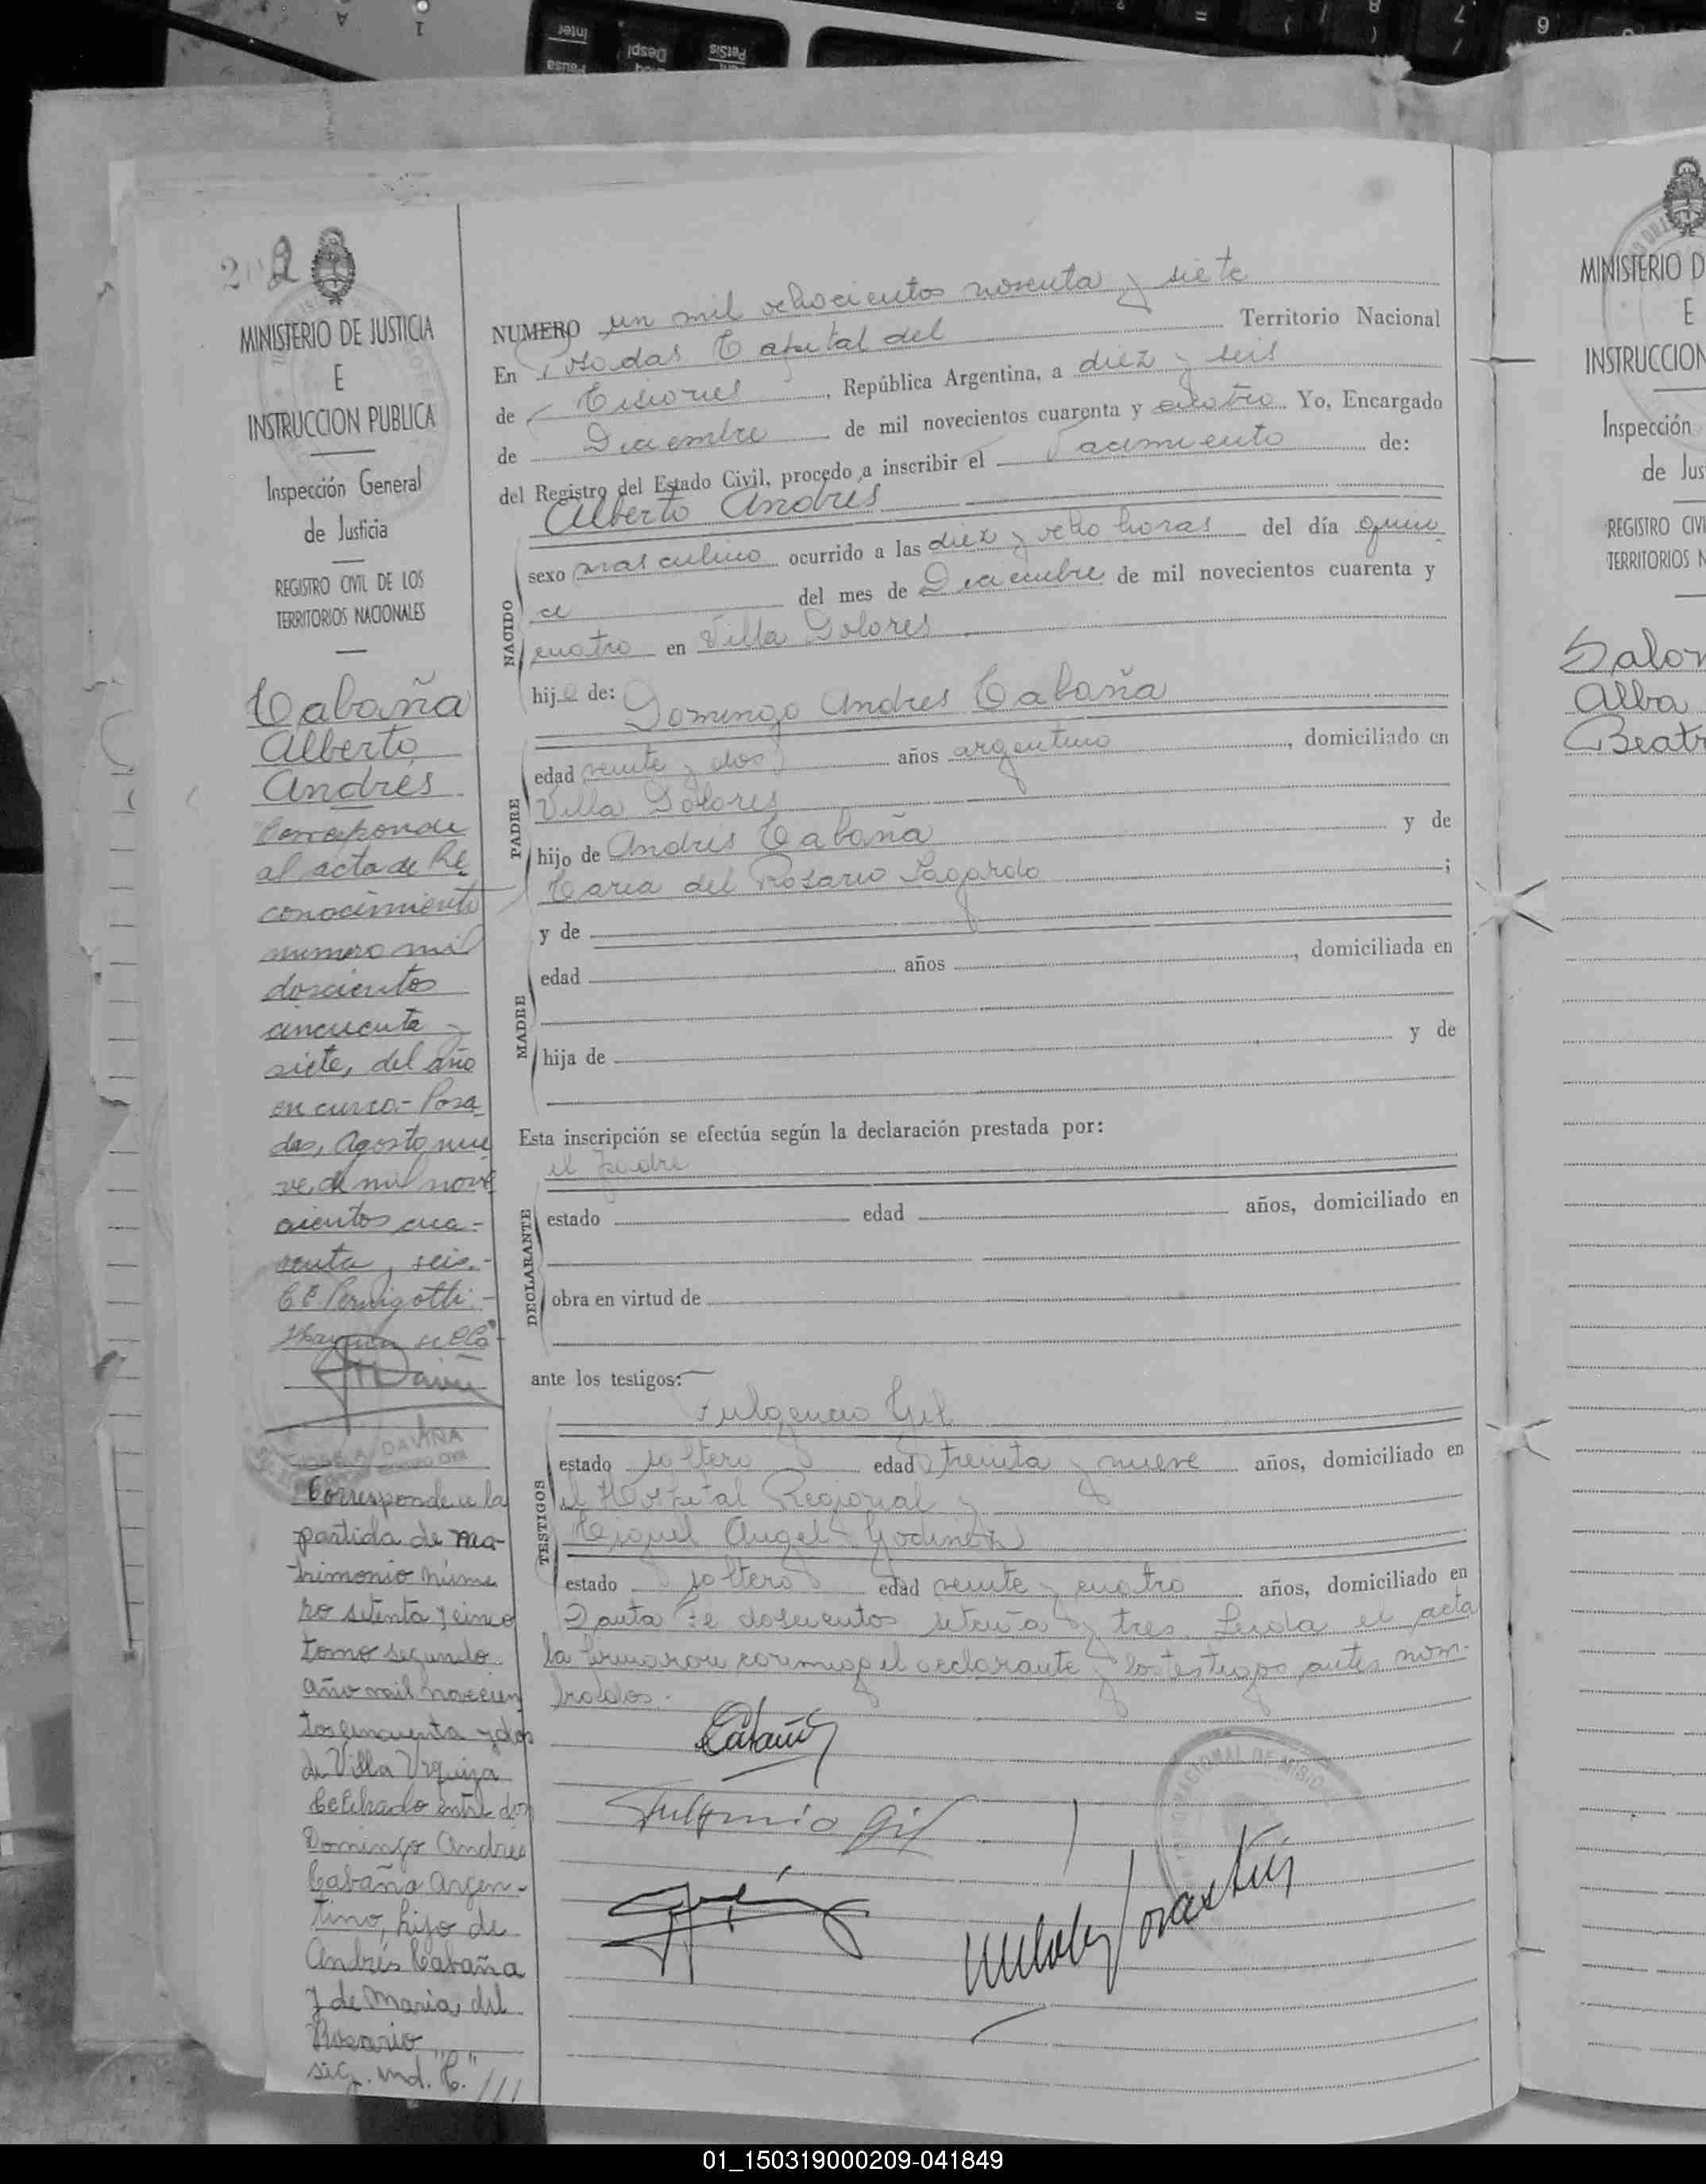 MINISTERIO DE JUSTICIA
E
INSTRUCCION PUBLICA
Inspección General
de Justicia
REGISTRO CIVIL DE LOS
TERRITORIOS NACIONALES
Cabaña
Alberto
Andrés
Corresponde
al acta de Re
conocimiento
numero mil
doscientos
cincuenta y
siete, del año
en curso.- Posa
das, Agosto nue
ve de mil nove
cientos cua-
renta y seis.-
DAVIÑA
Corresponde a la
partida de ma-
trimonio núme
ro setenta y cinco
tomo segundo
año mil novecien
tos cincuenta y dos
de Villa Urquiza
Celebrado entre don
Domingo Andrés
Cabaña Argen-
tino, hijo de
Andrés Cabaña
y de María del
Rosario
sig. ind. "C." ///
NUMERO un mil ochocientos noventa y siete
En Posadas Capital del Territorio Nacional
de Misiones, República Argentina, a diez y seis
de Diciembre de mil novecientos cuarenta y cuatro Yo, Encargado
del Registro del Estado Civil, procedo a inscribir el Nacimiento de:
Alberto Andrés
NACIDO
sexo masculino ocurrido a las diez y ocho horas del día quin
ce del mes de Diciembre de mil novecientos cuarenta y
cuatro en Villa Dolores
hijo de: Domingo Andres Cabaña
PADRE
edad veinte y dos años argentino, domiciliado en
Villa Dolores
hijo de Andrés Cabaña y de
Maria del Rosario Lagardo;
y de
MADRE
edad años, domiciliada en
hija de y de
Esta inscripción se efectúa según la declaración prestada por:
el padre
DECLARANTE
estado edad años, domiciliado en
obra en virtud de
ante los testigos:
Fulgencio Gil
TESTIGOS
estado soltero edad treinta y nueve años, domiciliado en
el Hospital Regional y
Miguel Angel Godinez
estado soltero edad veinte y cuatro años, domiciliado en
Santa Fe doscientos setenta y tres. Leida el acta
la firmaron conmigo el declarante y los testigos antes nom-
brados.
Cabaña
Fulgencio Gil
MINISTERIO D
E
INSTRUCCION
Inspección
de Jus
REGISTRO CIVI
TERRITORIOS N
Salom
Alba
Beatr
01_150319000209-041849